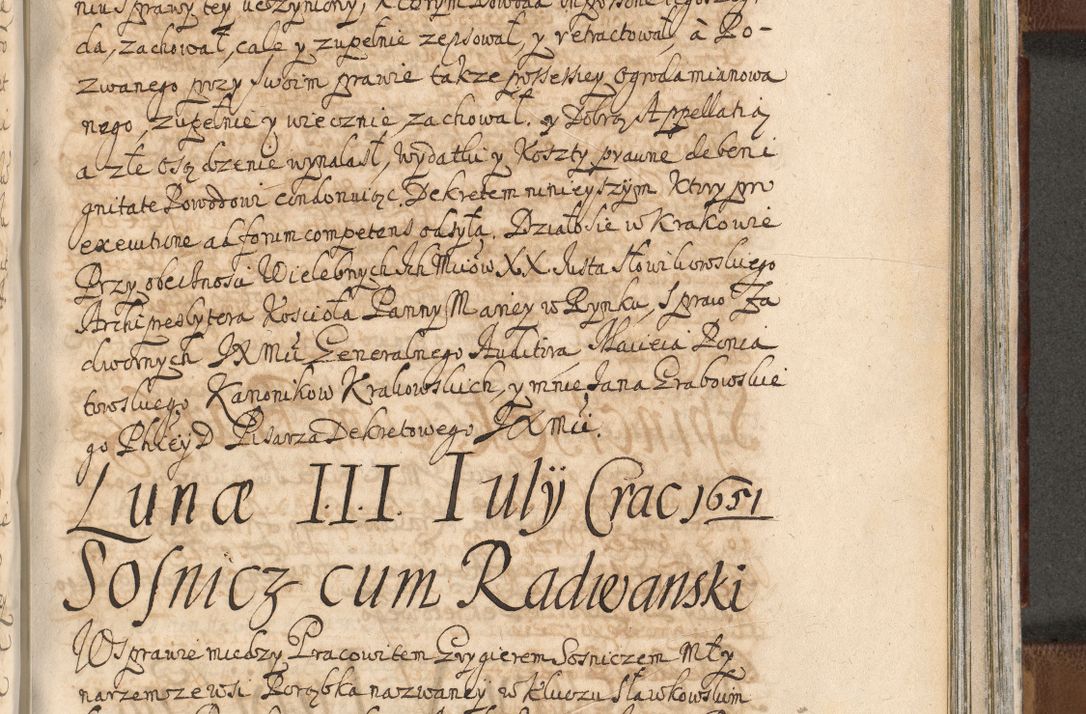 niu sprawy tey uczyniony, 
da, zachował, cale y zupełnie zepsował, y retractował, à Po-
zwanego przy swoim prawie takze possessiey Ogroda mianowa
nego, zupełnie y wiecznie zachował. y Dobrą Appellatią
a złe osądzenie wynalasł, Wydatki y Koszty prawne de beni
gnitate Powodowi condonuiąc. Dekretem ninieyszym Ktory pro
executione ad forum competens odsyła. Działo sie w Krakowie
Przy obecnosci Wielebnych Ich Mciow XX. Justa Słowikowskiego
Archipresbytera Kosciola Panny Mariey w Rynku, Spraw Za
dwornych JX Mci Generalnego Auditora Macieia Ponia
towskiego Kanonikow Krakowskich, y mnie Jana Grabowskie
go Phiey D Pisarza Dekretowego JX Mci.
Lunæ III. Iulÿ Crac 1651
Sosnicz cum Radwanski
W Sprawie miedzy Pracowitem Grygierem Sosniczem Mły
narzem ze wsi Porąbka nazwaney w Kluczu Sławkowskim